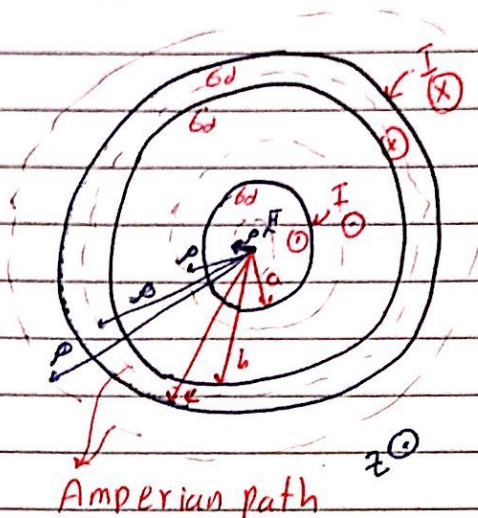 6d
I
⊗
6d
⊗
6d
I
⊙
⊙
ρ
ρ
ρ
ρ
a
b
c
z ⊙
Amperian path